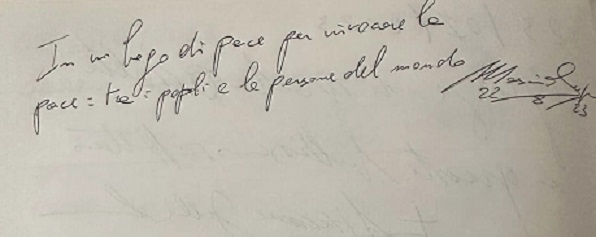 In un luogo di pace per invocare la
pace = tra = popoli e le persone del mondo
22 8 23